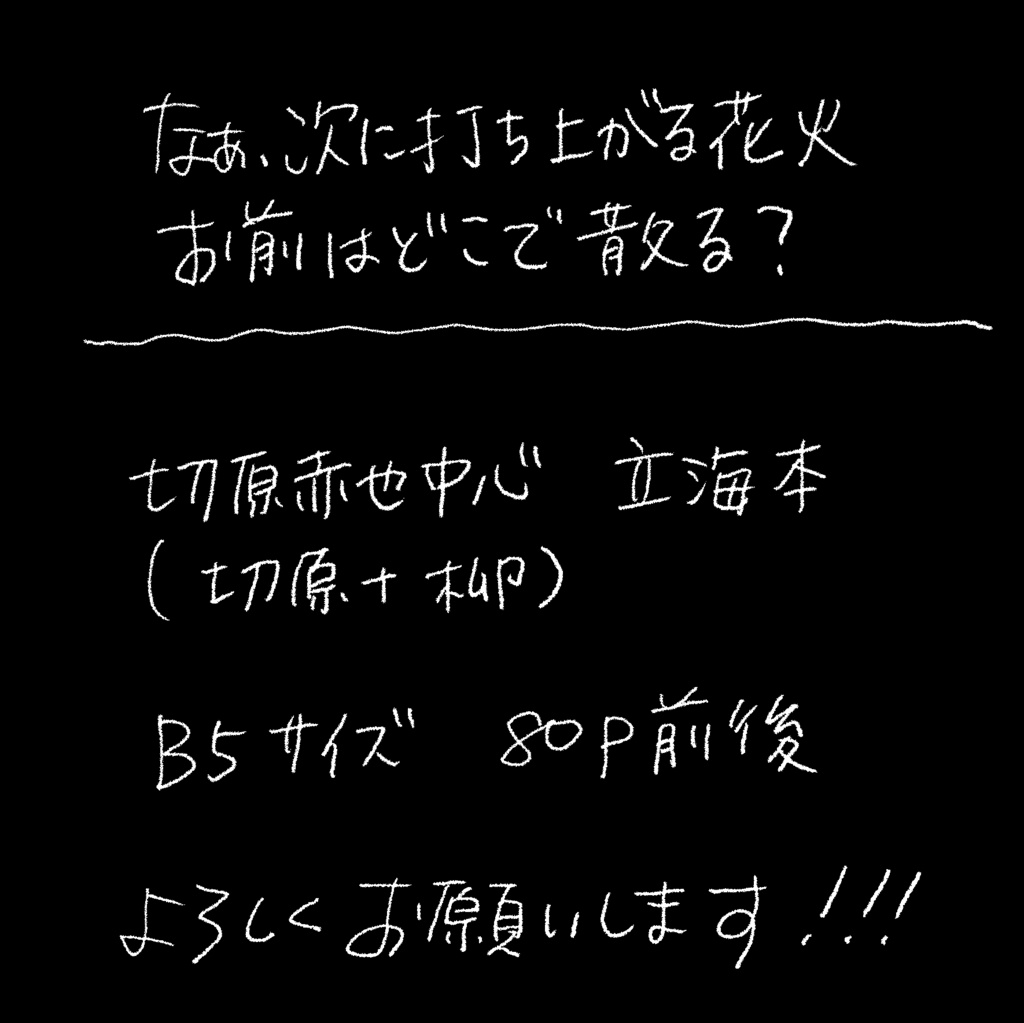 なぁ、次に打ち上がる花火
お前はどこで散る?
切原赤也中心 立海本
(切原+柳)
B5サイズ 80P前後
よろしくお願いします!!!